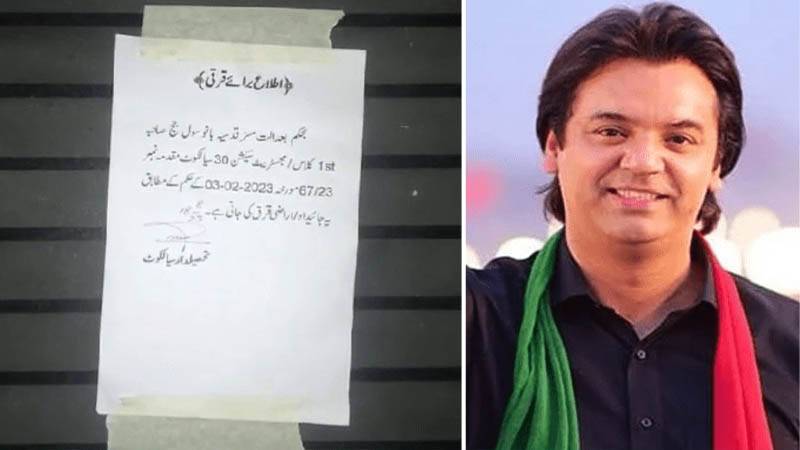 ﴿اطلاع برائے قرقی﴾
بحکم بعدالت مسز قدسیہ بانو سول جج صاحبہ
1st کلاس/مجسٹریٹ سیکشن 30 سیالکوٹ مقدمہ نمبر
67/23 مورخہ 03-02-2023 کے حکم کے مطابق
یہ جائیداد/اراضی قرق کی جاتی ہے۔
تحصیلدار سیالکوٹ